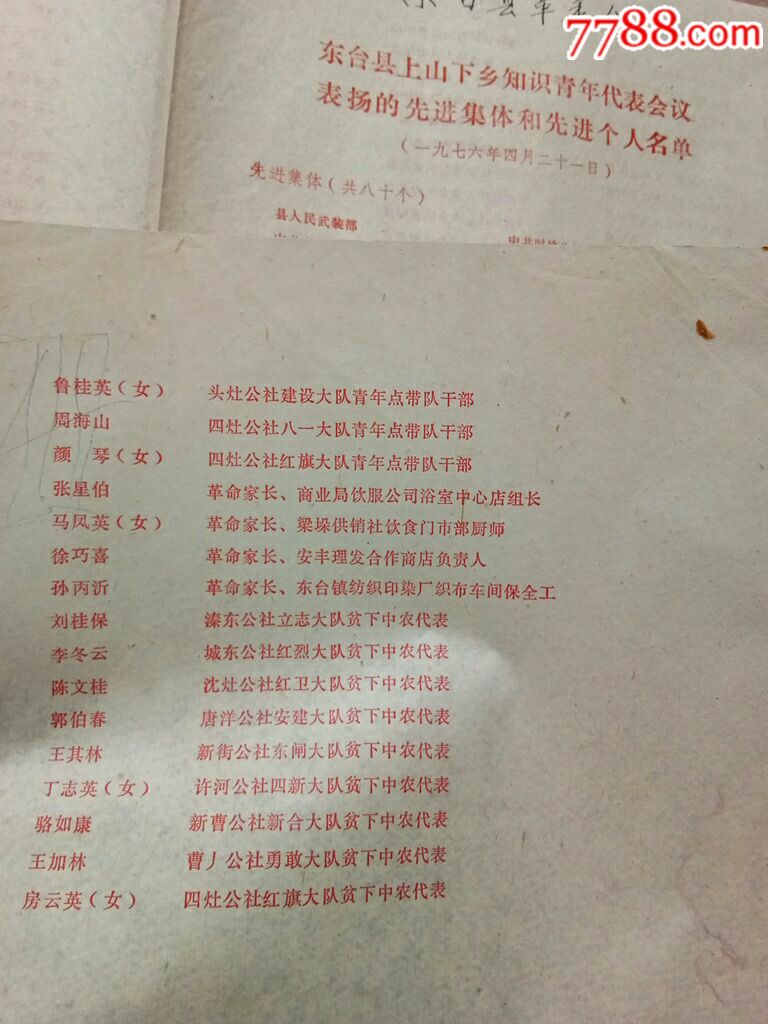 7788.com
东台县革委
东台县上山下乡知识青年代表会议
表扬的先进集体和先进个人名单
（一九七六年四月二十一日）
先进集体（共八十个）
县人民武装部
鲁桂英（女） 头灶公社建设大队青年点带队干部
周海山 四灶公社八一大队青年点带队干部
颜 琴（女） 四灶公社红旗大队青年点带队干部
张星伯 革命家长、商业局饮服公司浴室中心店组长
马凤英（女） 革命家长、梁垛供销社饮食门市部厨师
徐巧喜 革命家长、安丰理发合作商店负责人
孙丙沂 革命家长、东台镇纺织印染厂织布车间保全工
刘桂保 溱东公社立志大队贫下中农代表
李冬云 城东公社红烈大队贫下中农代表
陈文桂 沈灶公社红卫大队贫下中农代表
郭伯春 唐洋公社安建大队贫下中农代表
王其林 新街公社东闸大队贫下中农代表
丁志英（女） 许河公社四新大队贫下中农代表
骆如康 新曹公社新合大队贫下中农代表
王加林 曹丿公社勇敢大队贫下中农代表
房云英（女） 四灶公社红旗大队贫下中农代表